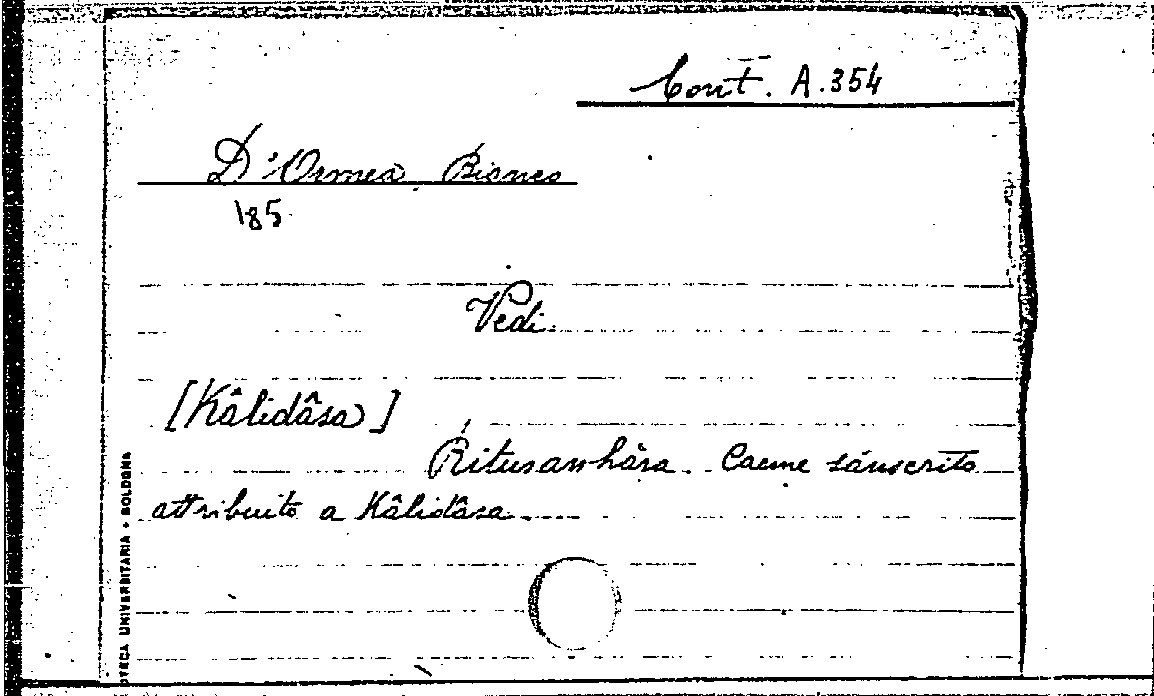 Cont. A.354
D'Ormea Bianco
185
Vedi
[Kâlidâsa]
Ritusanhâra. Carme sánscrito
attribuito a Kâlidâsa
OTECA UNIVERSITARIA • BOLOGNA